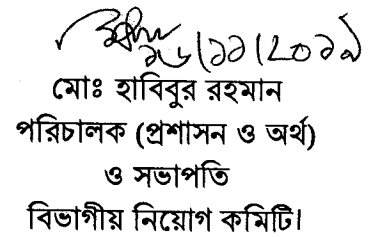 ১৮/১১/২০১৯
মোঃ হাবিবুর রহমান
পরিচালক (প্রশাসন ও অর্থ)
ও সভাপতি
বিভাগীয় নিয়োগ কমিটি।